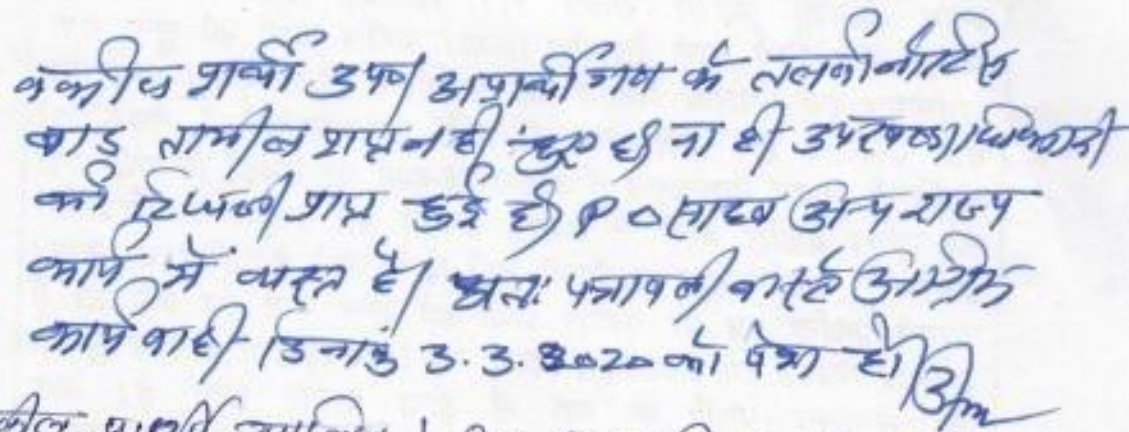 वकील प्रार्थी उप० अप्रार्थीगण के तलबी नोटिस
बाद तामील प्राप्त नही हुए है। ना ही उपखण्ड अधिकारी
की टिप्पणी प्राप्त हुई है। P O साहब अन्य राज्य
कार्य में व्यस्त है। अतः पत्रावली वास्ते अग्रीम
कार्यवाही दिनांक 3.3.2020 को पेश हो।
वकील प्रार्थी उपस्थित।